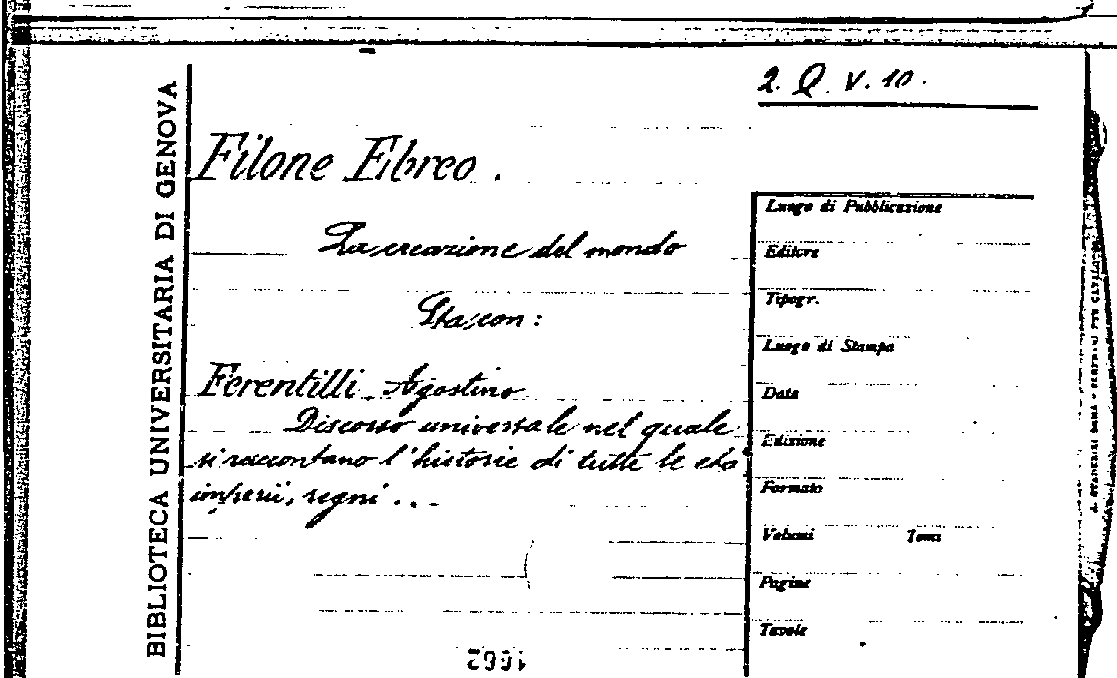 BIBLIOTECA UNIVERSITARIA DI GENOVA
2. Q. V. 10.
Filone Ebreo.
La creazione del mondo
Sta con:
Ferentilli Agostino
Discorso universale nel quale
si raccontano l'historie di tutte le età
imperii, regni...
Luogo di Pubblicazione
Editore
Tipogr.
Luogo di Stampa
Data
Edizione
Formato
Volumi Tomi
Pagine
Tavole
1662